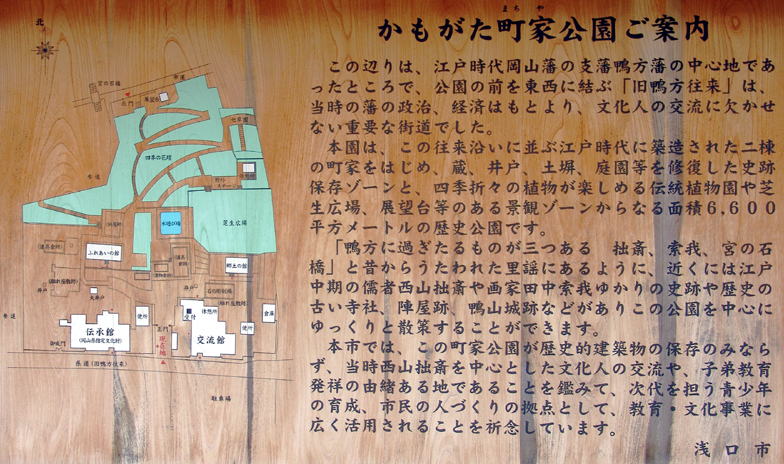 まちや
かもがた町家公園ご案内
この辺りは、江戸時代岡山藩の支藩鴨方藩の中心地であ
ったところで、公園の前を東西に結ぶ「旧鴨方往来」は、
当時の藩の政治、経済はもとより、文化人の交流に欠かせ
ない重要な街道でした。
本園は、この往来沿いに並ぶ江戸時代に築造された二棟
の町家をはじめ、蔵、井戸、土塀、庭園等を修復した史跡
保存ゾーンと、四季折々の植物が楽しめる伝統植物園や芝
生広場、展望台等のある景観ゾーンからなる面積6,600
平方メートルの歴史公園です。
「鴨方に過ぎたるものが三つある 拙斎、索我、宮の石
橋」と昔からうたわれた里謡にあるように、近くには江戸
中期の儒者西山拙斎や画家田中索我ゆかりの史跡や歴史の
古い寺社、陣屋跡、鴨山城跡などがありこの公園を中心に
ゆっくりと散策することができます。
本市では、この町家公園が歴史的建築物の保存のみなら
ず、当時西山拙斎を中心とした文化人の交流や、子弟教育
発祥の由緒ある地であることを鑑みて、次代を担う青少年
の育成、市民の人づくりの拠点として、教育・文化事業に
広く活用されることを祈念しています。
浅口市
北
宮の石橋
市道
北門
展望台
七草園
四季の花壇
野外
ステージ
市道
水遊び場
芝生広場
ふれあいの館
郷土の館
井戸
大井戸
井戸
便所
休憩所
受付
便所
倉庫
伝承館
(岡山県指定文化財)
正門
現在地
交流館
御成門
市道
県道(旧鴨方往来)
駐車場